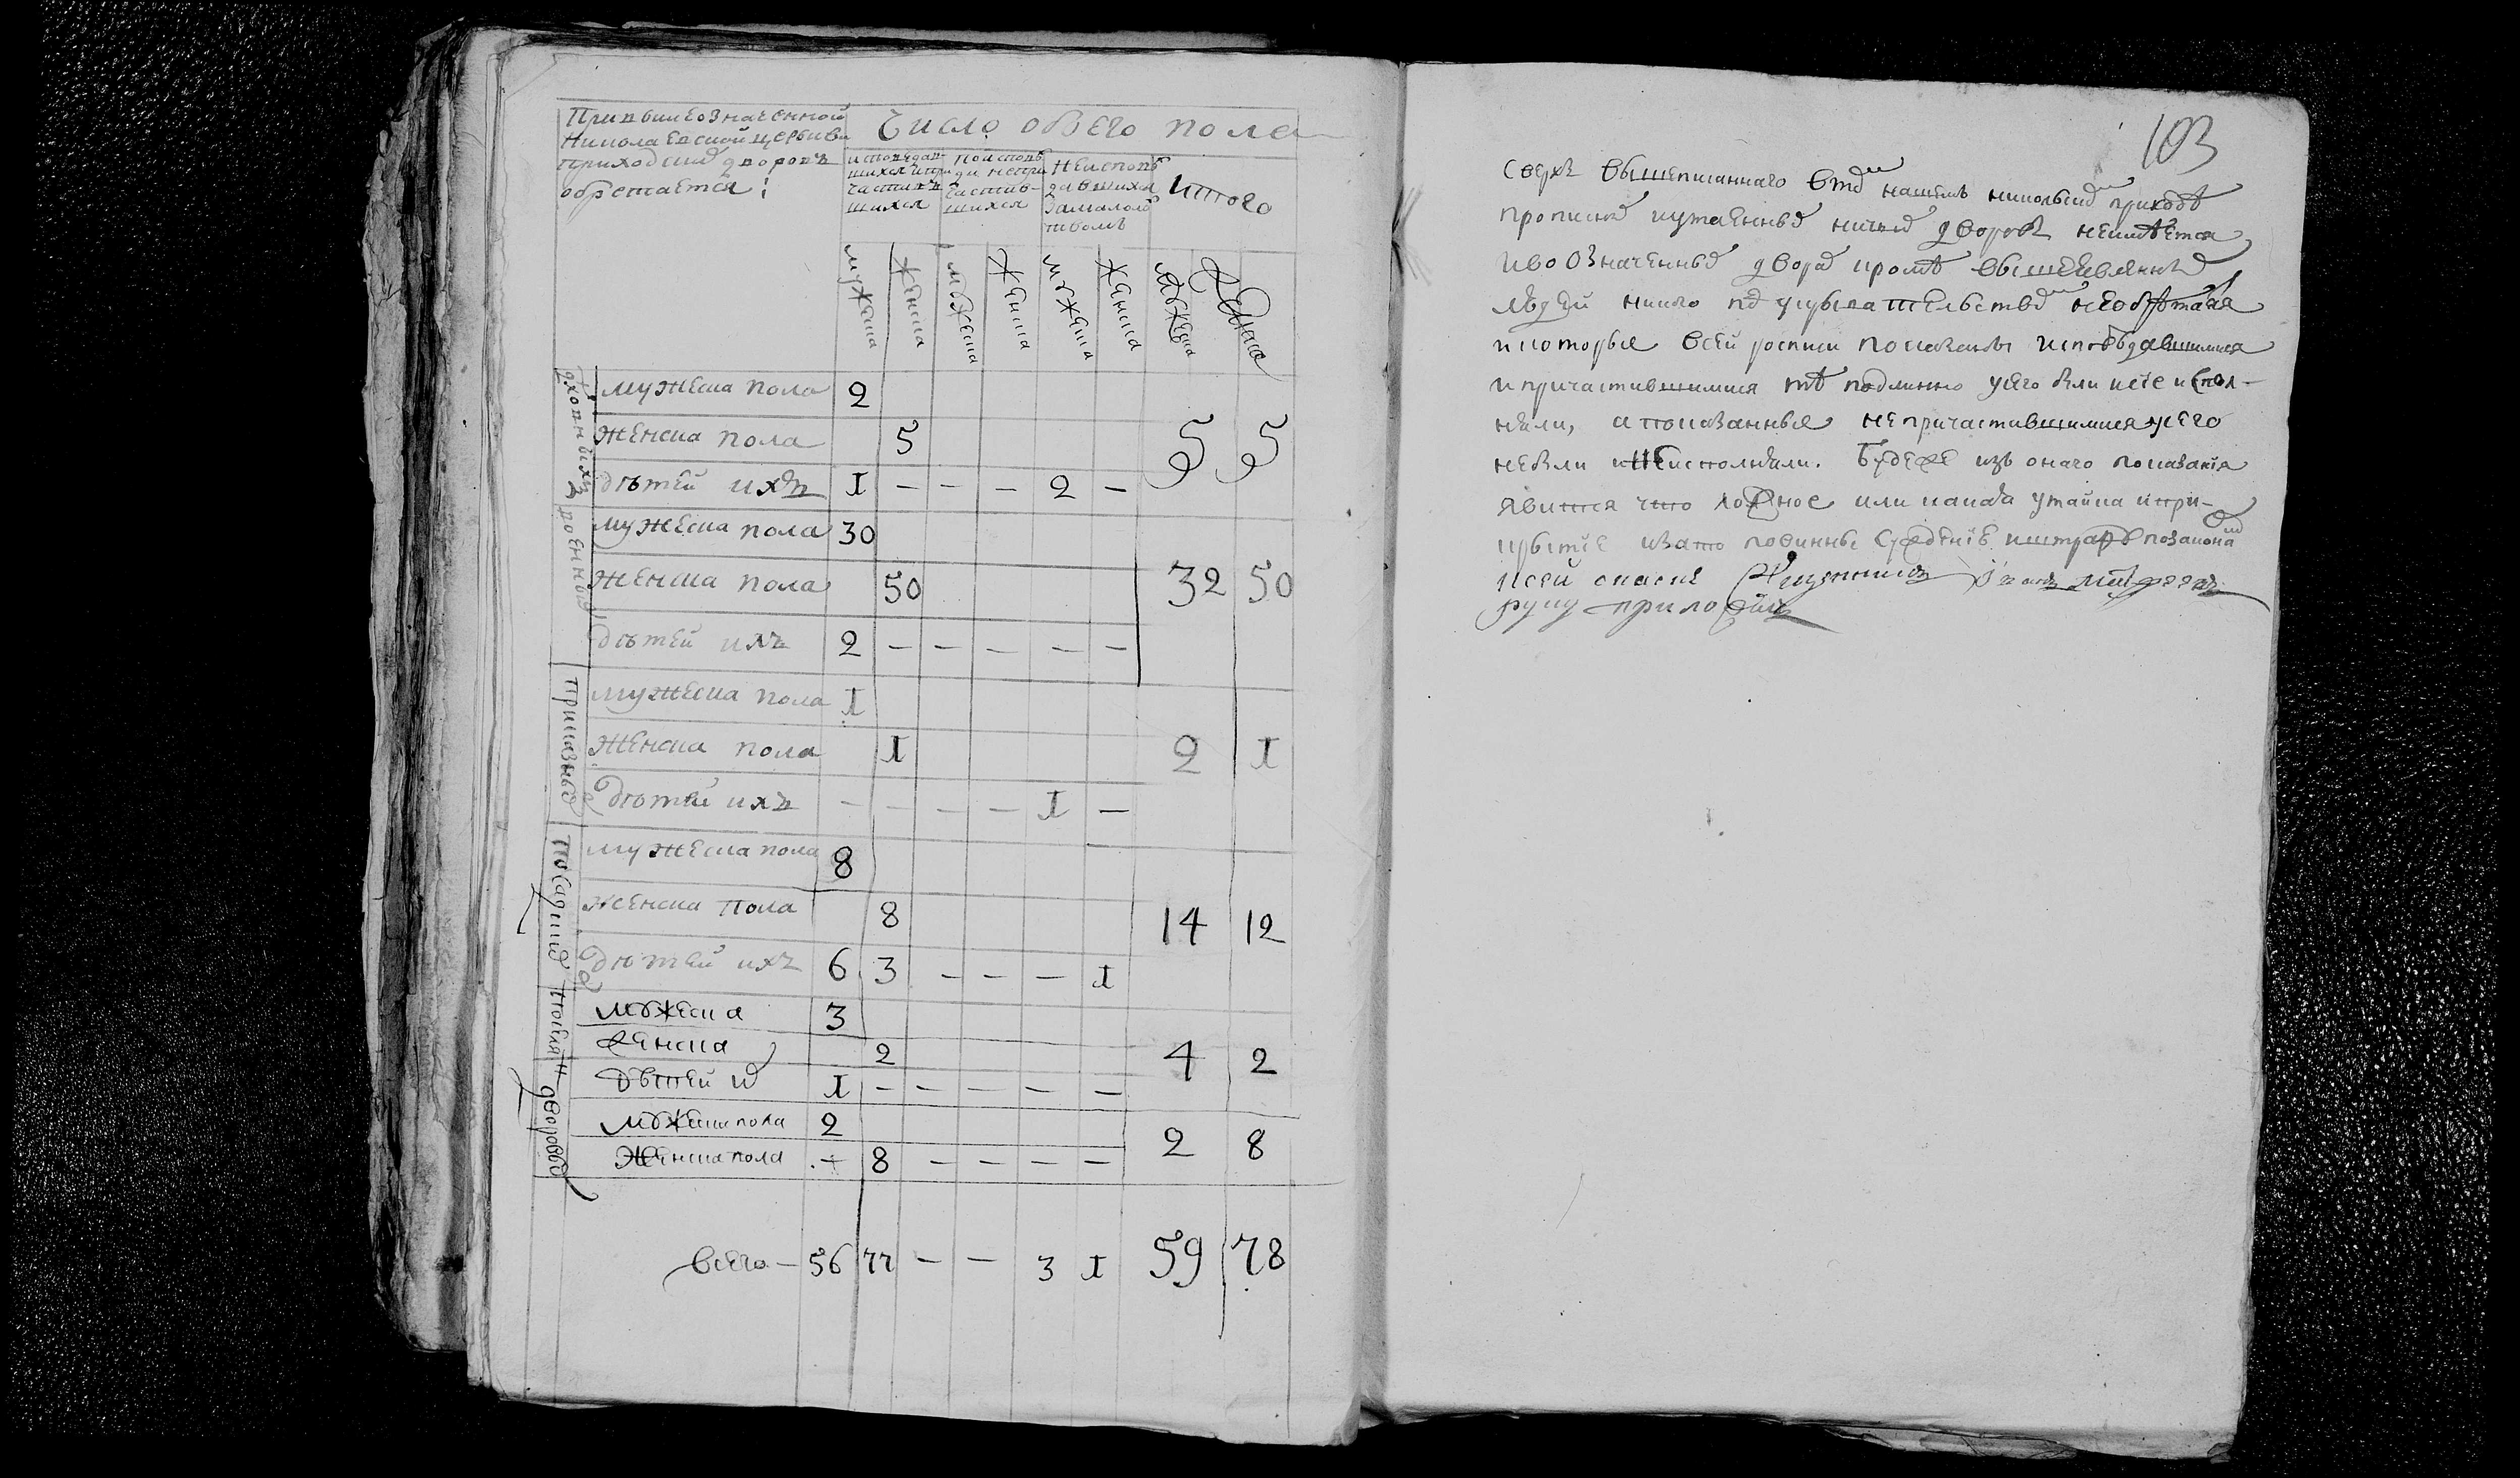 При вышеозначенной
Николаевской церькви
приходских дворовъ
обретается:
Число обᲂего пола
исповедав-
шихся и при
частив-
шихся
по исповѣ
ди непри
частив-
шихся
Не исповѣ
давшихся
за малолѣ
тством
итого
мужеска
женска
мужеска
женска
мужеска
женска
мужеска
женска
духовныхъ
мужеска пола 2
женска пола 5
дѣтей ихъ 1 — — — 2 —
5 5
военных
мужеска пола 30
женска пола 50
дѣтей ихъ 2 — — — — —
32 50
Приказных
мужеска пола 1
женска пола 1
дѣтей ихъ — — — — 1 —
2 1
Посадских
мужеска пола 8
женска пола 8
дѣтей ихъ 6 3 — — — 1
14 12
мужеска 3
женска 2
дѣтей их 1 — — — — —
4 2
дворовых
мужеска пола 2
женска пола — 8 — — — —
2 8
всего — 56 77 — — 3 1 59 78
103
сверхъ вышеписанного в том нашем никольском приходѣ
прописных и утаенных ничьих дворовъ неимѣется
и во означенных дворах кромѣ вышеявленных
людей никого под укрывательством необрѣтался
и которые в сей росписи показаны исповѣдавшимися
и причастившимися тѣ подлинно у сего были и сіе испол-
нили, а показанные непричастившимися у сего
небыли и неисполнили. Будеже изъ оного показания
явится что ложное или какая утайка и при-
крытие и за то повинны суждению и штрафу по законам
к сей скаске Иванъ
руку приложилъ